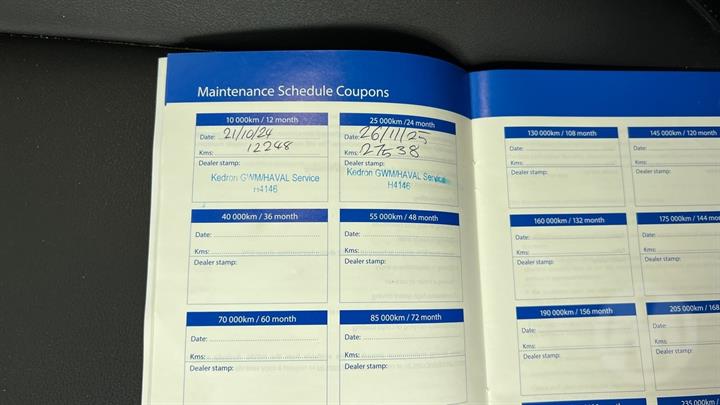 Maintenance Schedule Coupons
10 000km / 12 month
Date: 21/10/24
Kms: 12248
Dealer stamp:
Kedron GWM/HAVAL Service
H4146
25 000km / 24 month
Date: 26/11/25
Kms: 27538
Dealer stamp:
Kedron GWM/HAVAL Service
H4146
40 000km / 36 month
Date:
Kms:
Dealer stamp:
55 000km / 48 month
Date:
Kms:
Dealer stamp:
70 000km / 60 month
Date:
Kms:
Dealer stamp:
85 000km / 72 month
Date:
Kms:
Dealer stamp:
130 000km / 108 month
Date:
Kms:
Dealer stamp:
145 000km / 120 month
Date:
Kms:
Dealer stamp:
160 000km / 132 month
Date:
Kms:
Dealer stamp:
175 000km / 144
Date:
Kms:
Dealer stamp:
190 000km / 156 month
Date:
Kms:
Dealer stamp:
205 000km / 168
Date:
Kms:
Dealer stamp:
235 000km